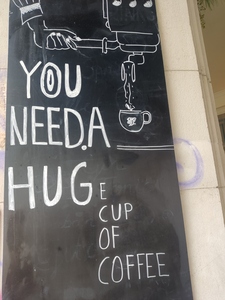 YOU
NEED A
HUG E
CUP
OF
COFFEE